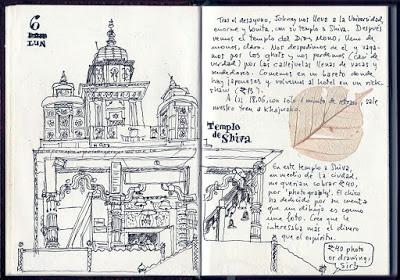 6
LUN
Tras el desayuno, Johnny nos lleva a la Universidad,
enorme y bonita, con su templo a Shiva. Después
vemos el templo del Dios Mono, lleno de
monos, claro. Nos despedimos de él y vaga-
mos por los ghats y nos perdemos (casi de
verdad) por las callejuelas llenas de vacas y
vendedores. Comemos en un bareto donde
hay japoneses y volvemos al hotel en un rick-
shaw
A las 18.06, con sólo 1 minuto de retraso, sale
nuestro tren a Khajuraho.
Templo
de Shiva
En este templo a Shiva,
en medio de la ciudad,
me querían cobrar ₹40,
por "photography". El chico
ha deducido por su cuenta
que un dibujo es como
una foto. Creo que le
interesaba más el dinero
que el espíritu.
₹40 photo
or drawing,
Sir!